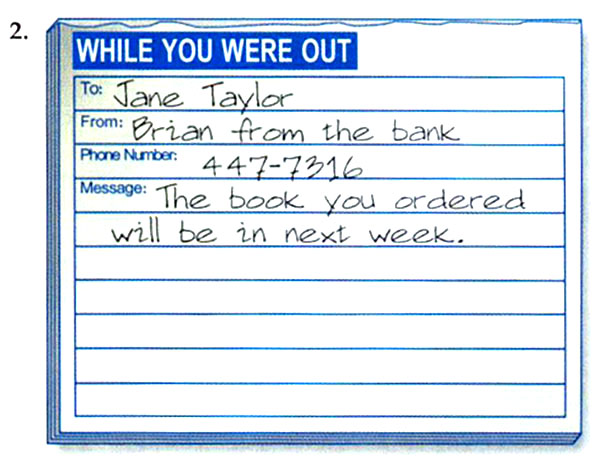 2.
WHILE YOU WERE OUT
To: Jane Taylor
From: Brian from the bank
Phone Number: 447-7316
Message: The book you ordered
will be in next week.